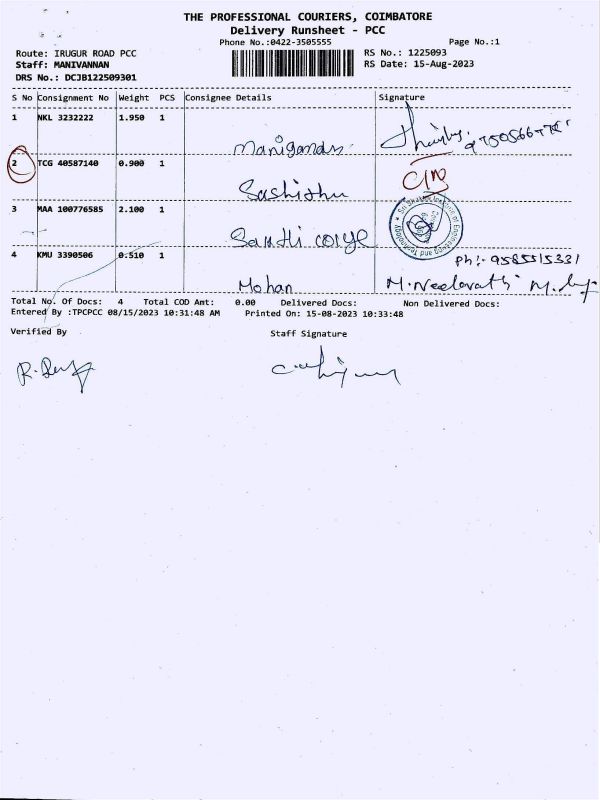 THE PROFESSIONAL COURIERS, COIMBATORE
Delivery Runsheet - PCC
Phone No.:0422-3505555 Page No.:1
Route: IRUGUR ROAD PCC RS No.: 1225093
Staff: MANIVANNAN RS Date: 15-Aug-2023
DRS No.: DCJB122509301
S No Consignment No Weight PCS Consignee Details Signature
1 NKL 3232222 1.950 1
2 TCG 40587140 0.900 1
Sashithu
3 MAA 100776585 2.100 1
4 KMU 3390506 0.510 1 Ph:- 9585515331
Mohan
Total No. Of Docs: 4 Total COD Amt: 0.00 Delivered Docs: Non Delivered Docs:
Entered By :TPCPCC 08/15/2023 10:31:48 AM Printed On: 15-08-2023 10:33:48
Verified By Staff Signature